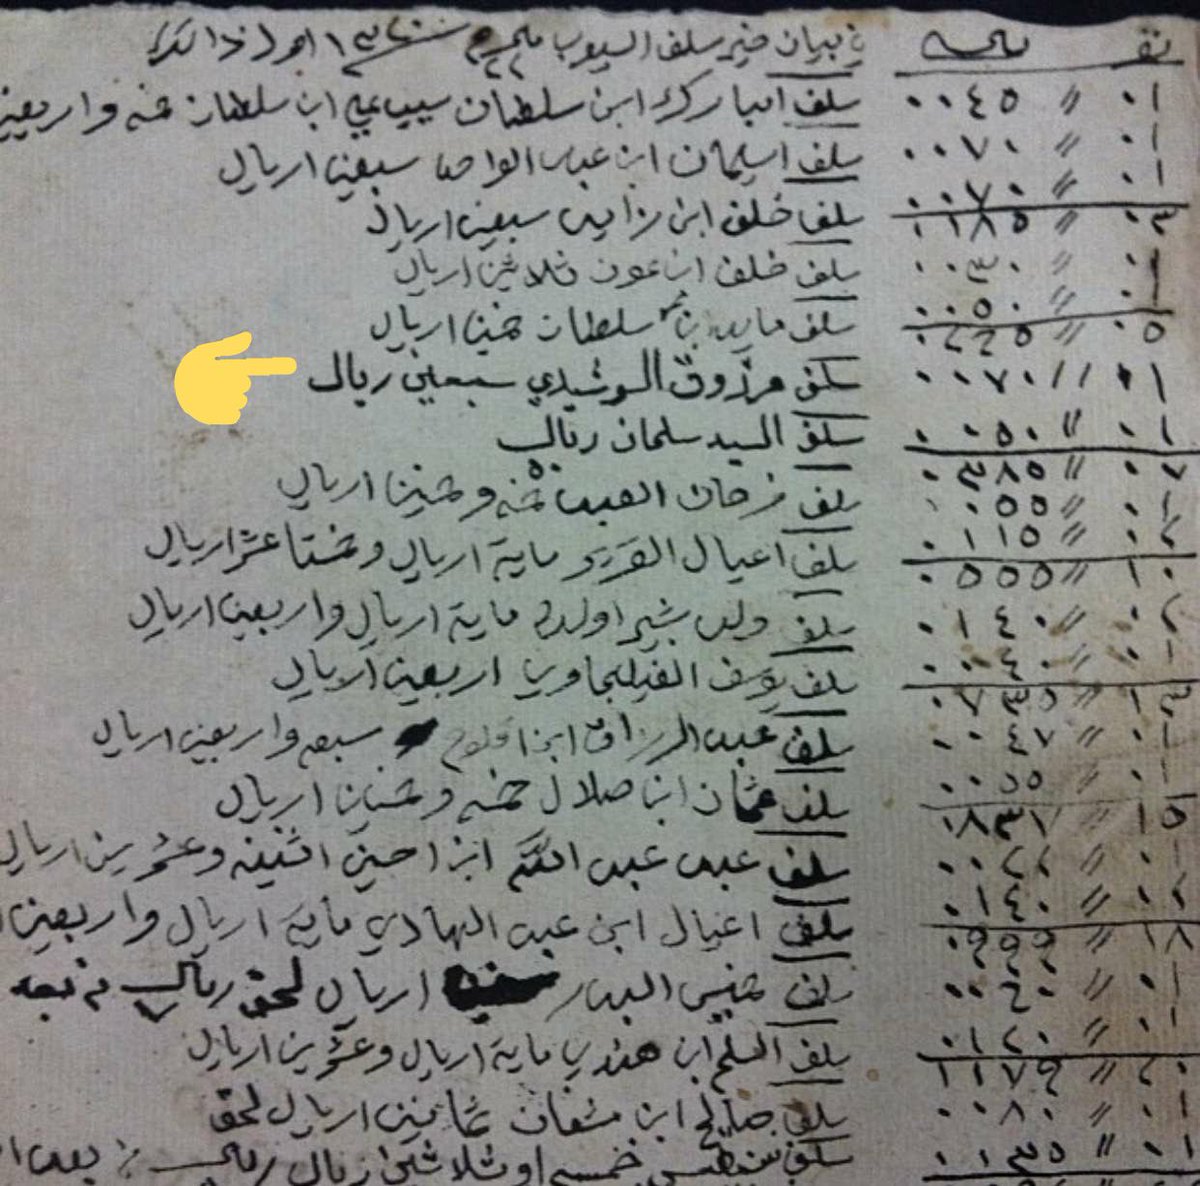 نفر يحسه
بيان خبر سلف السيوب
٠١ // ٠٠٤٥ سلف امبارك ابن سلطان سيب علي ابن سلطان خمسه واربعين
٠١ // ٠٠٧٠ سلف اسليمان ابن عبد الواحد سبعين اريال
٠١ // ٠٠٧٠
٠٣ // ٠١٨٥ سلف خلف ابن زايد سبعين اريال
٠١ // ٠٠٣٠ سلف خلف ابن عون ثلاثين اريال
٠١ // ٠٠٥٠
٠٥ // ٠٢٦٥ سلف ماجد ابن سلطان خمسين اريال
٠١ // ٠٠٧٠ سلف مرزوق الرشيدي سبعين ريال
٠١ // ٠٠٥٠ سلف السيد سلمان ريال ٥٠
٠٧ // ٠٣٨٥
٠١ // ٠٠٥٥ سلف فرحان العبد خمسه وخمسين اريال
٠٢ // ٠١١٥ سلف اعيال القريو ماية اريال وخمستا عشر اريال
١٠ // ٠٥٥٥
٠٢ // ٠١٤٠ سلف ولد بشير اولده ماية اريال واربعين اريال
٠١ // ٠٠٤٠ سلف يوسف الفيلجاوي اربعين اريال
١٣ // ٠٧٣٥
٠١ // ٠٠٤٧ سلف عبد الرزاق ابن سبعه واربعين اريال
٠١ // ٠٠٥٥ سلف عثمان ابن صلال خمسه وخمسين اريال
١٥ // ٠٨٣٧
٠١ // ٠٠٢٢ سلف عبد عبد الله ابن احسين اثنينه وعشرين اريال
٠٢ // ٠١٤٠ سلف اعيال ابن عبد الهادي ماية اريال واربعين
١٨ // ٠٩٩٩
٠١ // ٠٠٦٠ سلف خميس البدر اريال لحق ريال
٠١ // ٠١٢٠ سلف السلم ابن هندي ماية اريال وعشرين اريال
٢٠ // ١١٧٩
٠١ // ٠٠٨٠ سلف صالح ابن مشعان ثمانين اريال لحق
٠١ // ٠١٣٥ سلف خمسه اوثلاثين اريال ريال